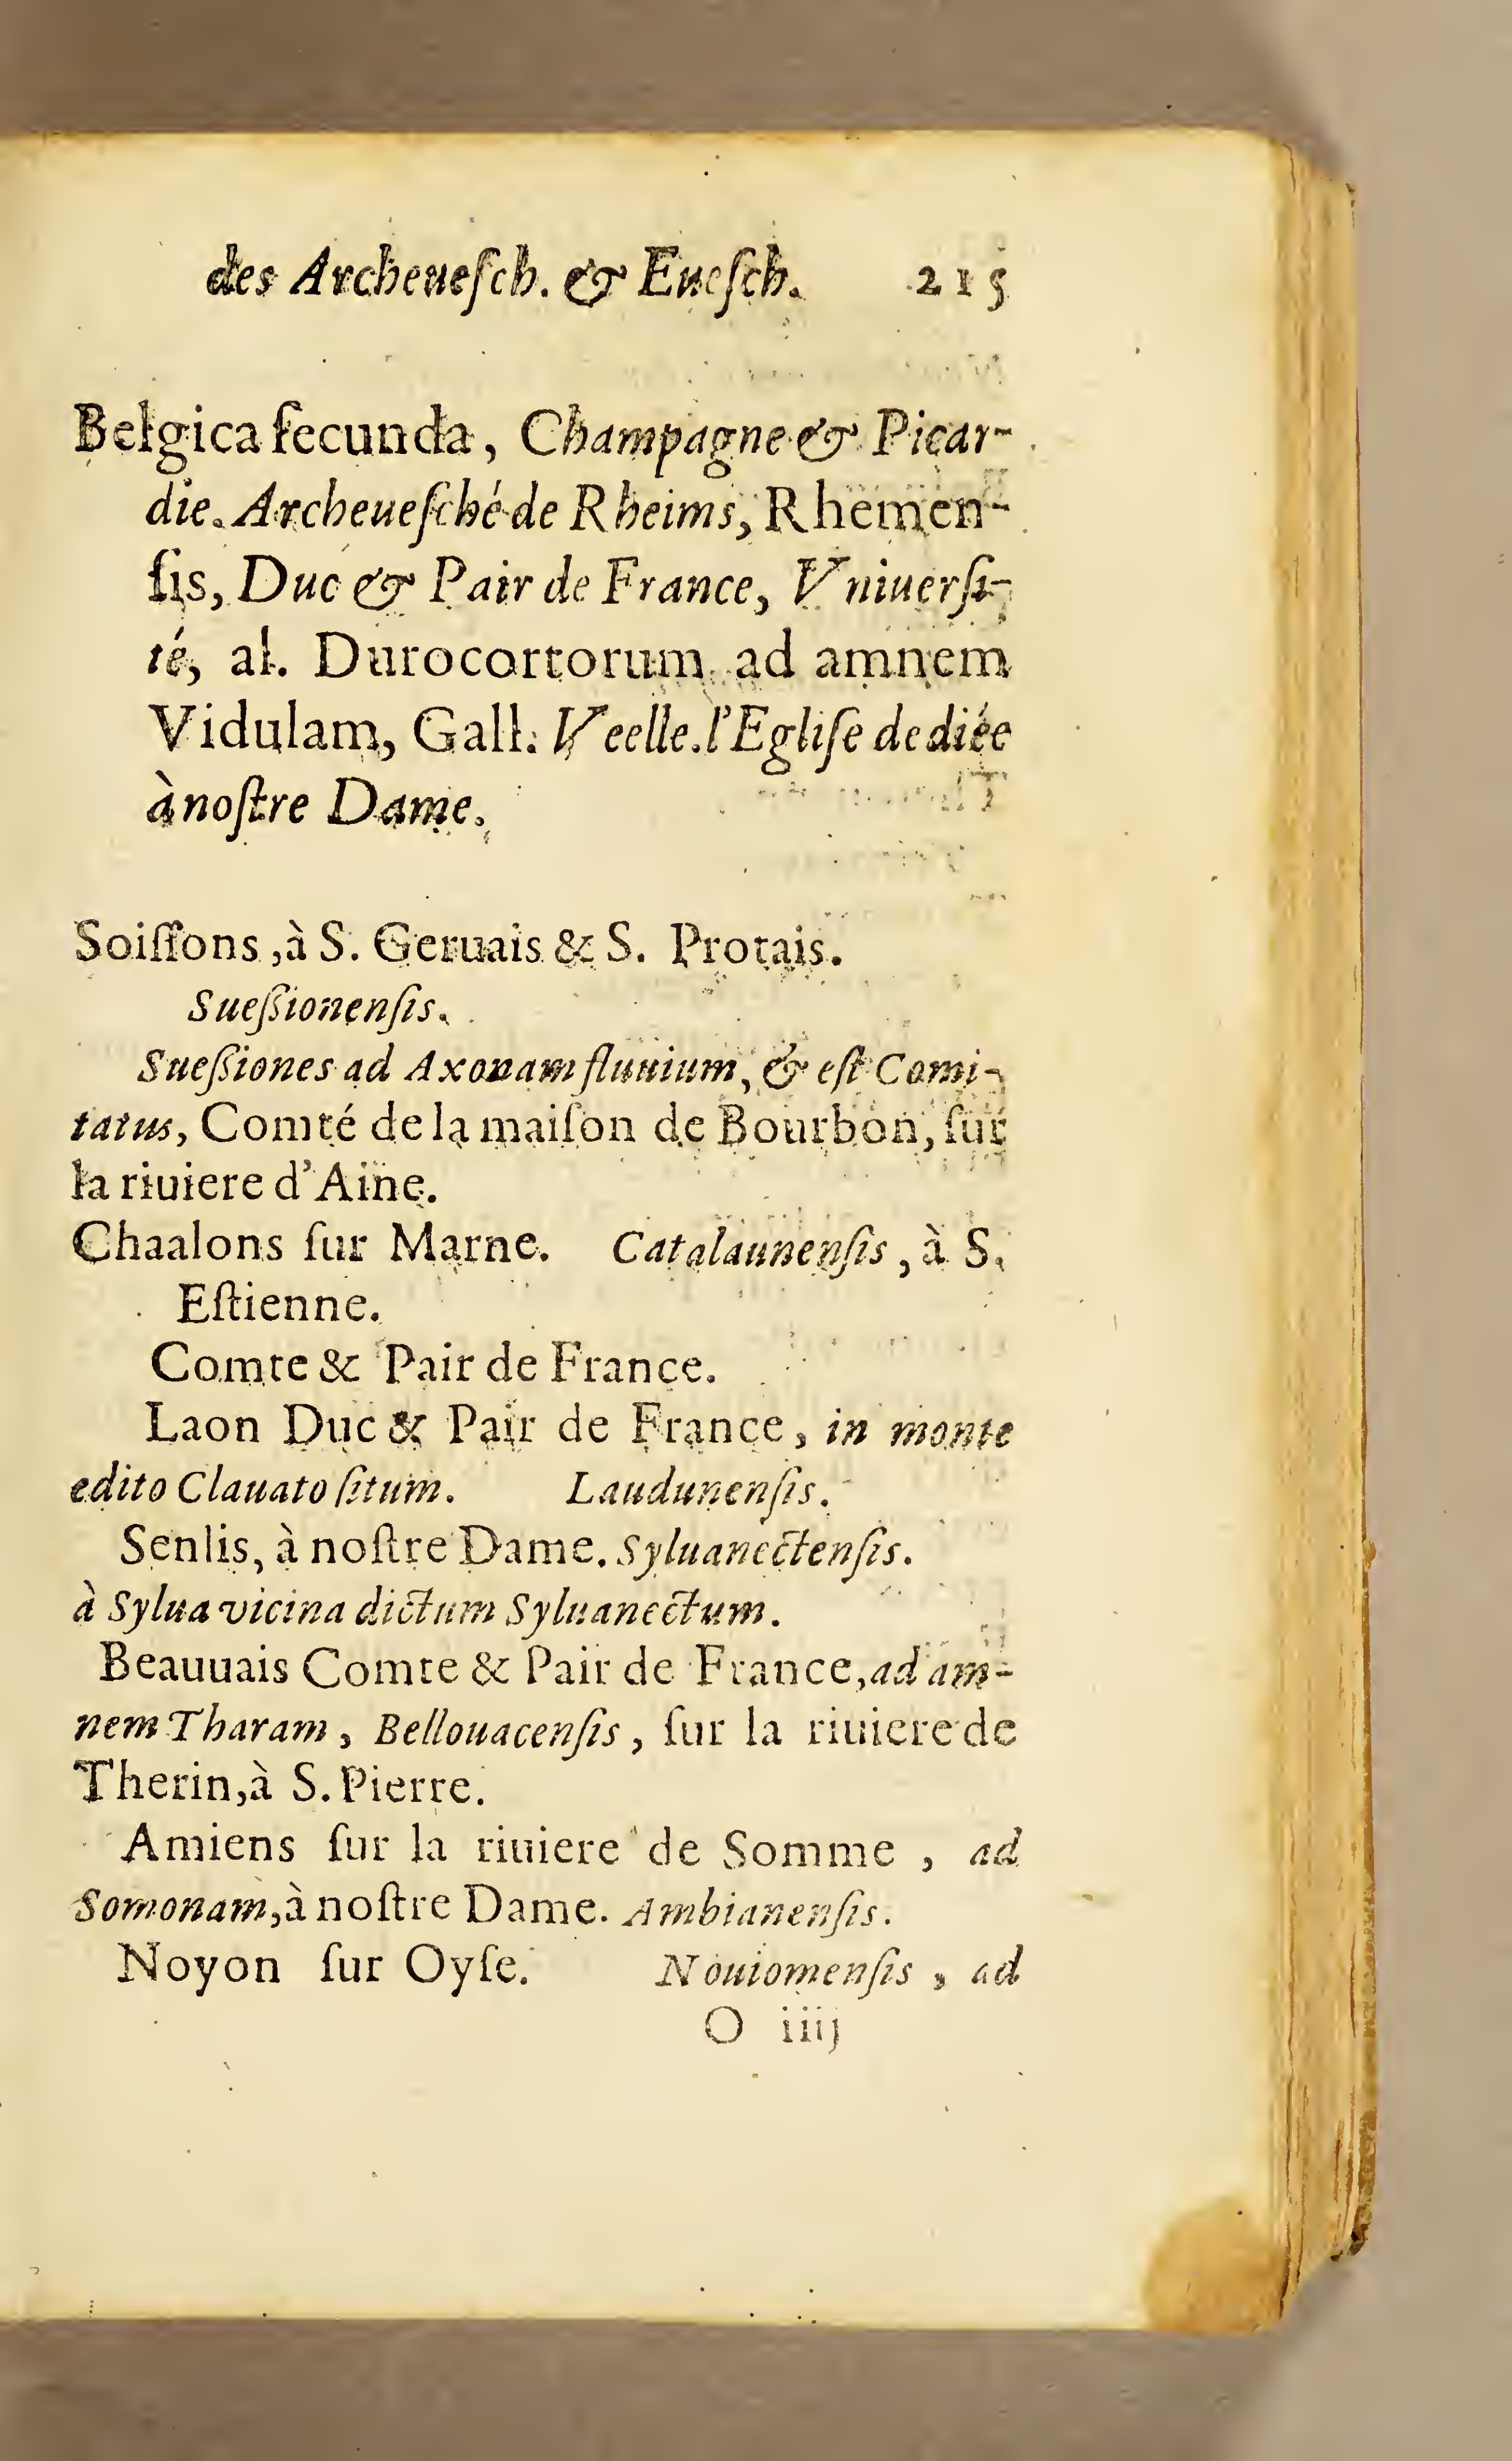 des Archeueſch. & Eueſch. 215
Belgica ſecunda, Champagne & Picar-
die. Archeueſché de Rheims, Rhemen-
ſis, Duc & Pair de France, Vniuerſi-
té, al. Durocortorum ad amnem
Vidulam, Gall. Veelle. l'Egliſe dediée
à noſtre Dame.
Soiſſons, à S. Geruais & S. Protais.
Sueſſionenſis.
Sueſſiones ad Axonam fluuium, & eſt Comi-
tatus, Comté de la maiſon de Bourbon, ſur
la riuiere d'Aine.
Chaalons ſur Marne. Catalaunenſis, à S.
Eſtienne.
Comte & Pair de France.
Laon Duc & Pair de France, in monte
edito Clauato ſitum. Laudunenſis.
Senlis, à noſtre Dame. Syluanectenſis.
à Sylua vicina dictum Syluanectum.
Beauuais Comte & Pair de France, ad am-
nem Tharam, Bellouacenſis, ſur la riuiere de
Therin, à S. Pierre.
Amiens ſur la riuiere de Somme, ad
Somonam, à noſtre Dame. Ambianenſis.
Noyon ſur Oyſe. Nouiomenſis, ad
O iiij